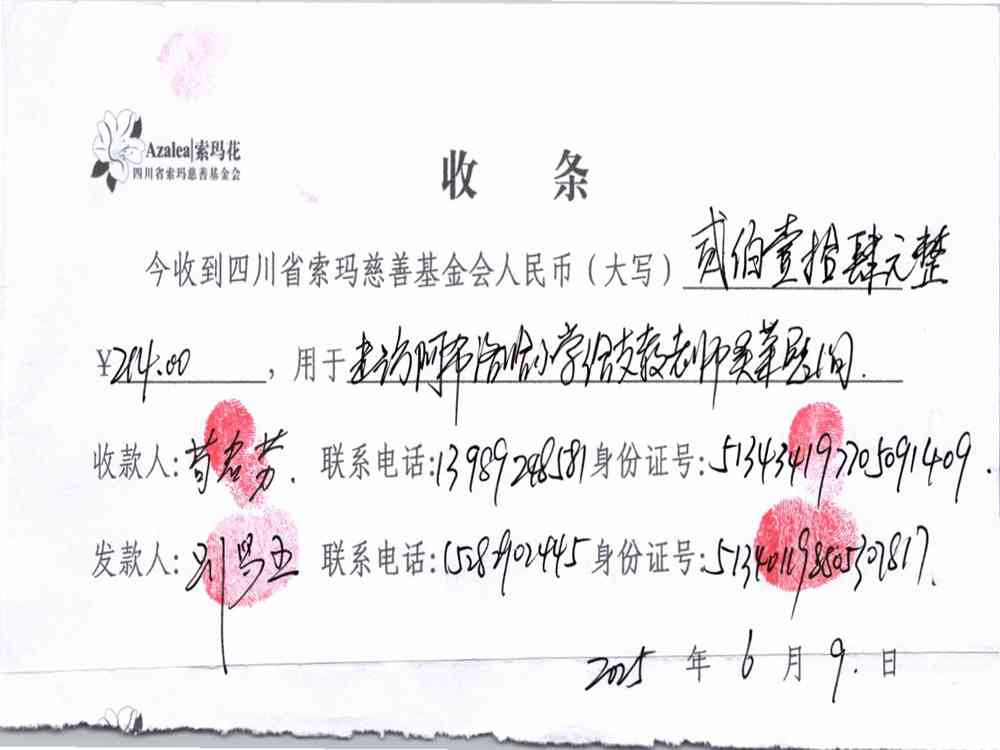 Azalea|索玛花
四川省索玛慈善基金会
收 条
今收到四川省索玛慈善基金会人民币（大写）贰佰壹拾肆元整
¥214.00，用于走访阿布洛哈小学给支教老师买慰问.
收款人: 联系电话:13989248581身份证号:513434197705091409.
发款人: 联系电话:15284902445身份证号:513401198505302817.
2025年6月9.日